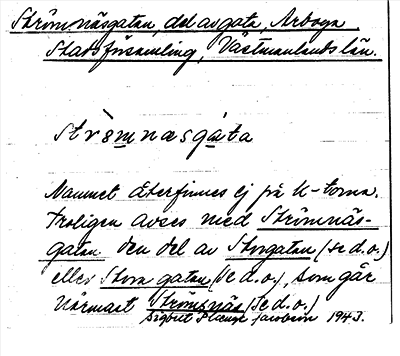 Strömnäsgatan, del av gata, Arboga
Stadsförsamling, Västmanlands län.
Strömnæsgáta
Namnet återfinnes ej på K-torna.
Troligen avses med Strömnäs-
gatan den del av Storgatan (se d.o.)
eller Stora gatan (se d.o.), som går
närmast Strömsnäs (se d.o.)
Sigbrit Plænge Jacobson 1943.